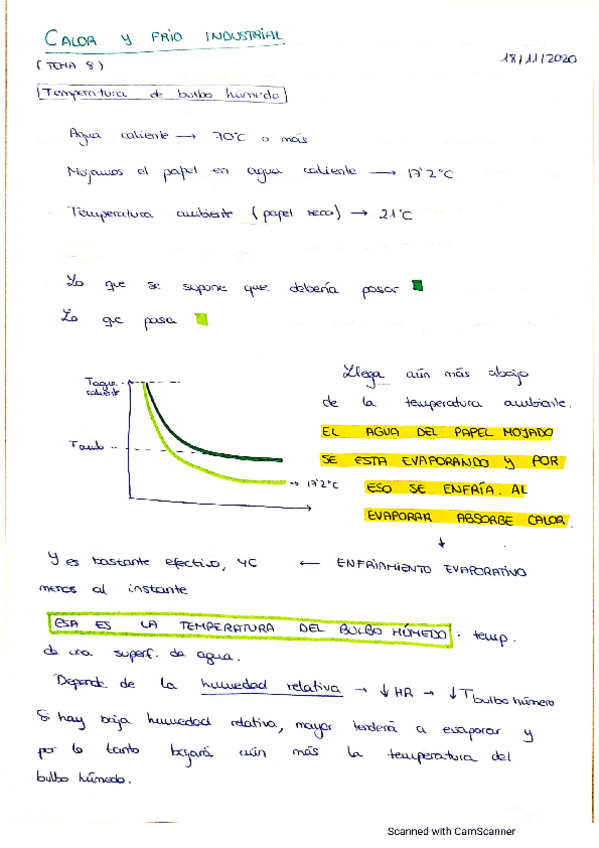 CALOR Y FRIO INDUSTRIAL
18/11/2020
(TEMA 8)
Temperatura de bulbo húmedo
Agua caliente → 70°C o más
Mojamos el papel en agua caliente → 17'2°C
Temperatura ambiente (papel seco) → 21°C
Lo que se supone que debería pasar
Lo que pasa
Tagua caliente
Tamb
→ 17'2°C
Llega aún más abajo
de la temperatura ambiente.
EL AGUA DEL PAPEL MOJADO
SE ESTA EVAPORANDO Y POR
ESO SE ENFRÍA. AL
EVAPORAR ABSORBE CALOR.
↓
Y es bastante efectivo, 4°C ← ENFRIAMIENTO EVAPORATIVO
menos al instante
ESA ES LA TEMPERATURA DEL BULBO HÚMEDO. temp.
de una superf. de agua.
Depende de la humedad relativa → ↓HR → ↓T bulbo húmero
Si hay baja humedad relativa, mayor tenderá a evaporar y
por lo tanto bajará aún más la temperatura del
bulbo húmedo.
Scanned with CamScanner